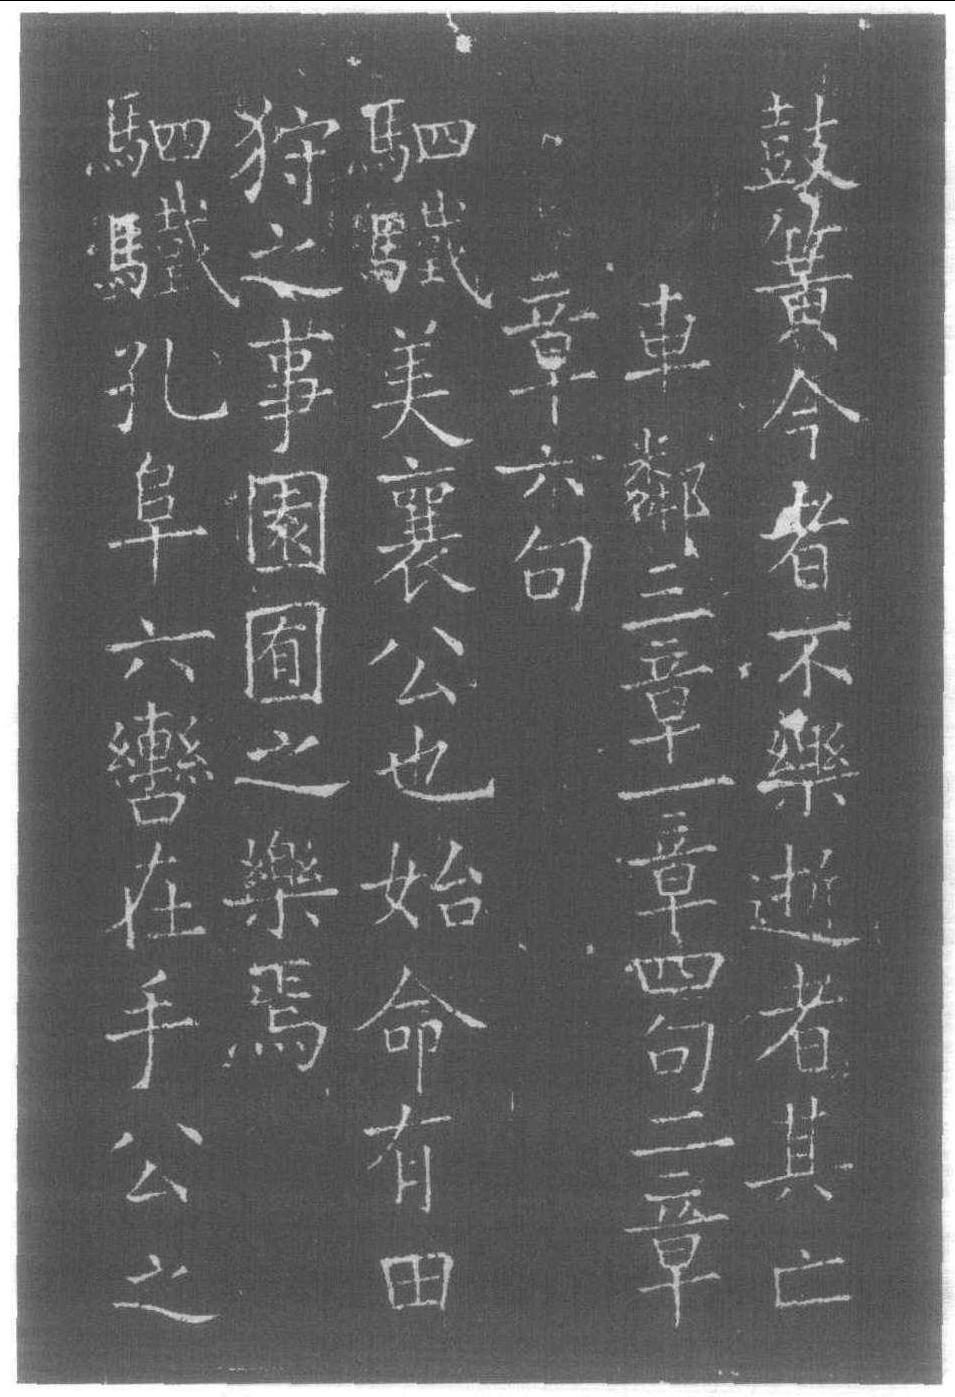 鼓簧今者不樂逝者其亡
車鄰三章一章四句二章
章六句
駟驖美襄公也始命有田
狩之事園囿之樂焉
駟驖孔阜六轡在手公之